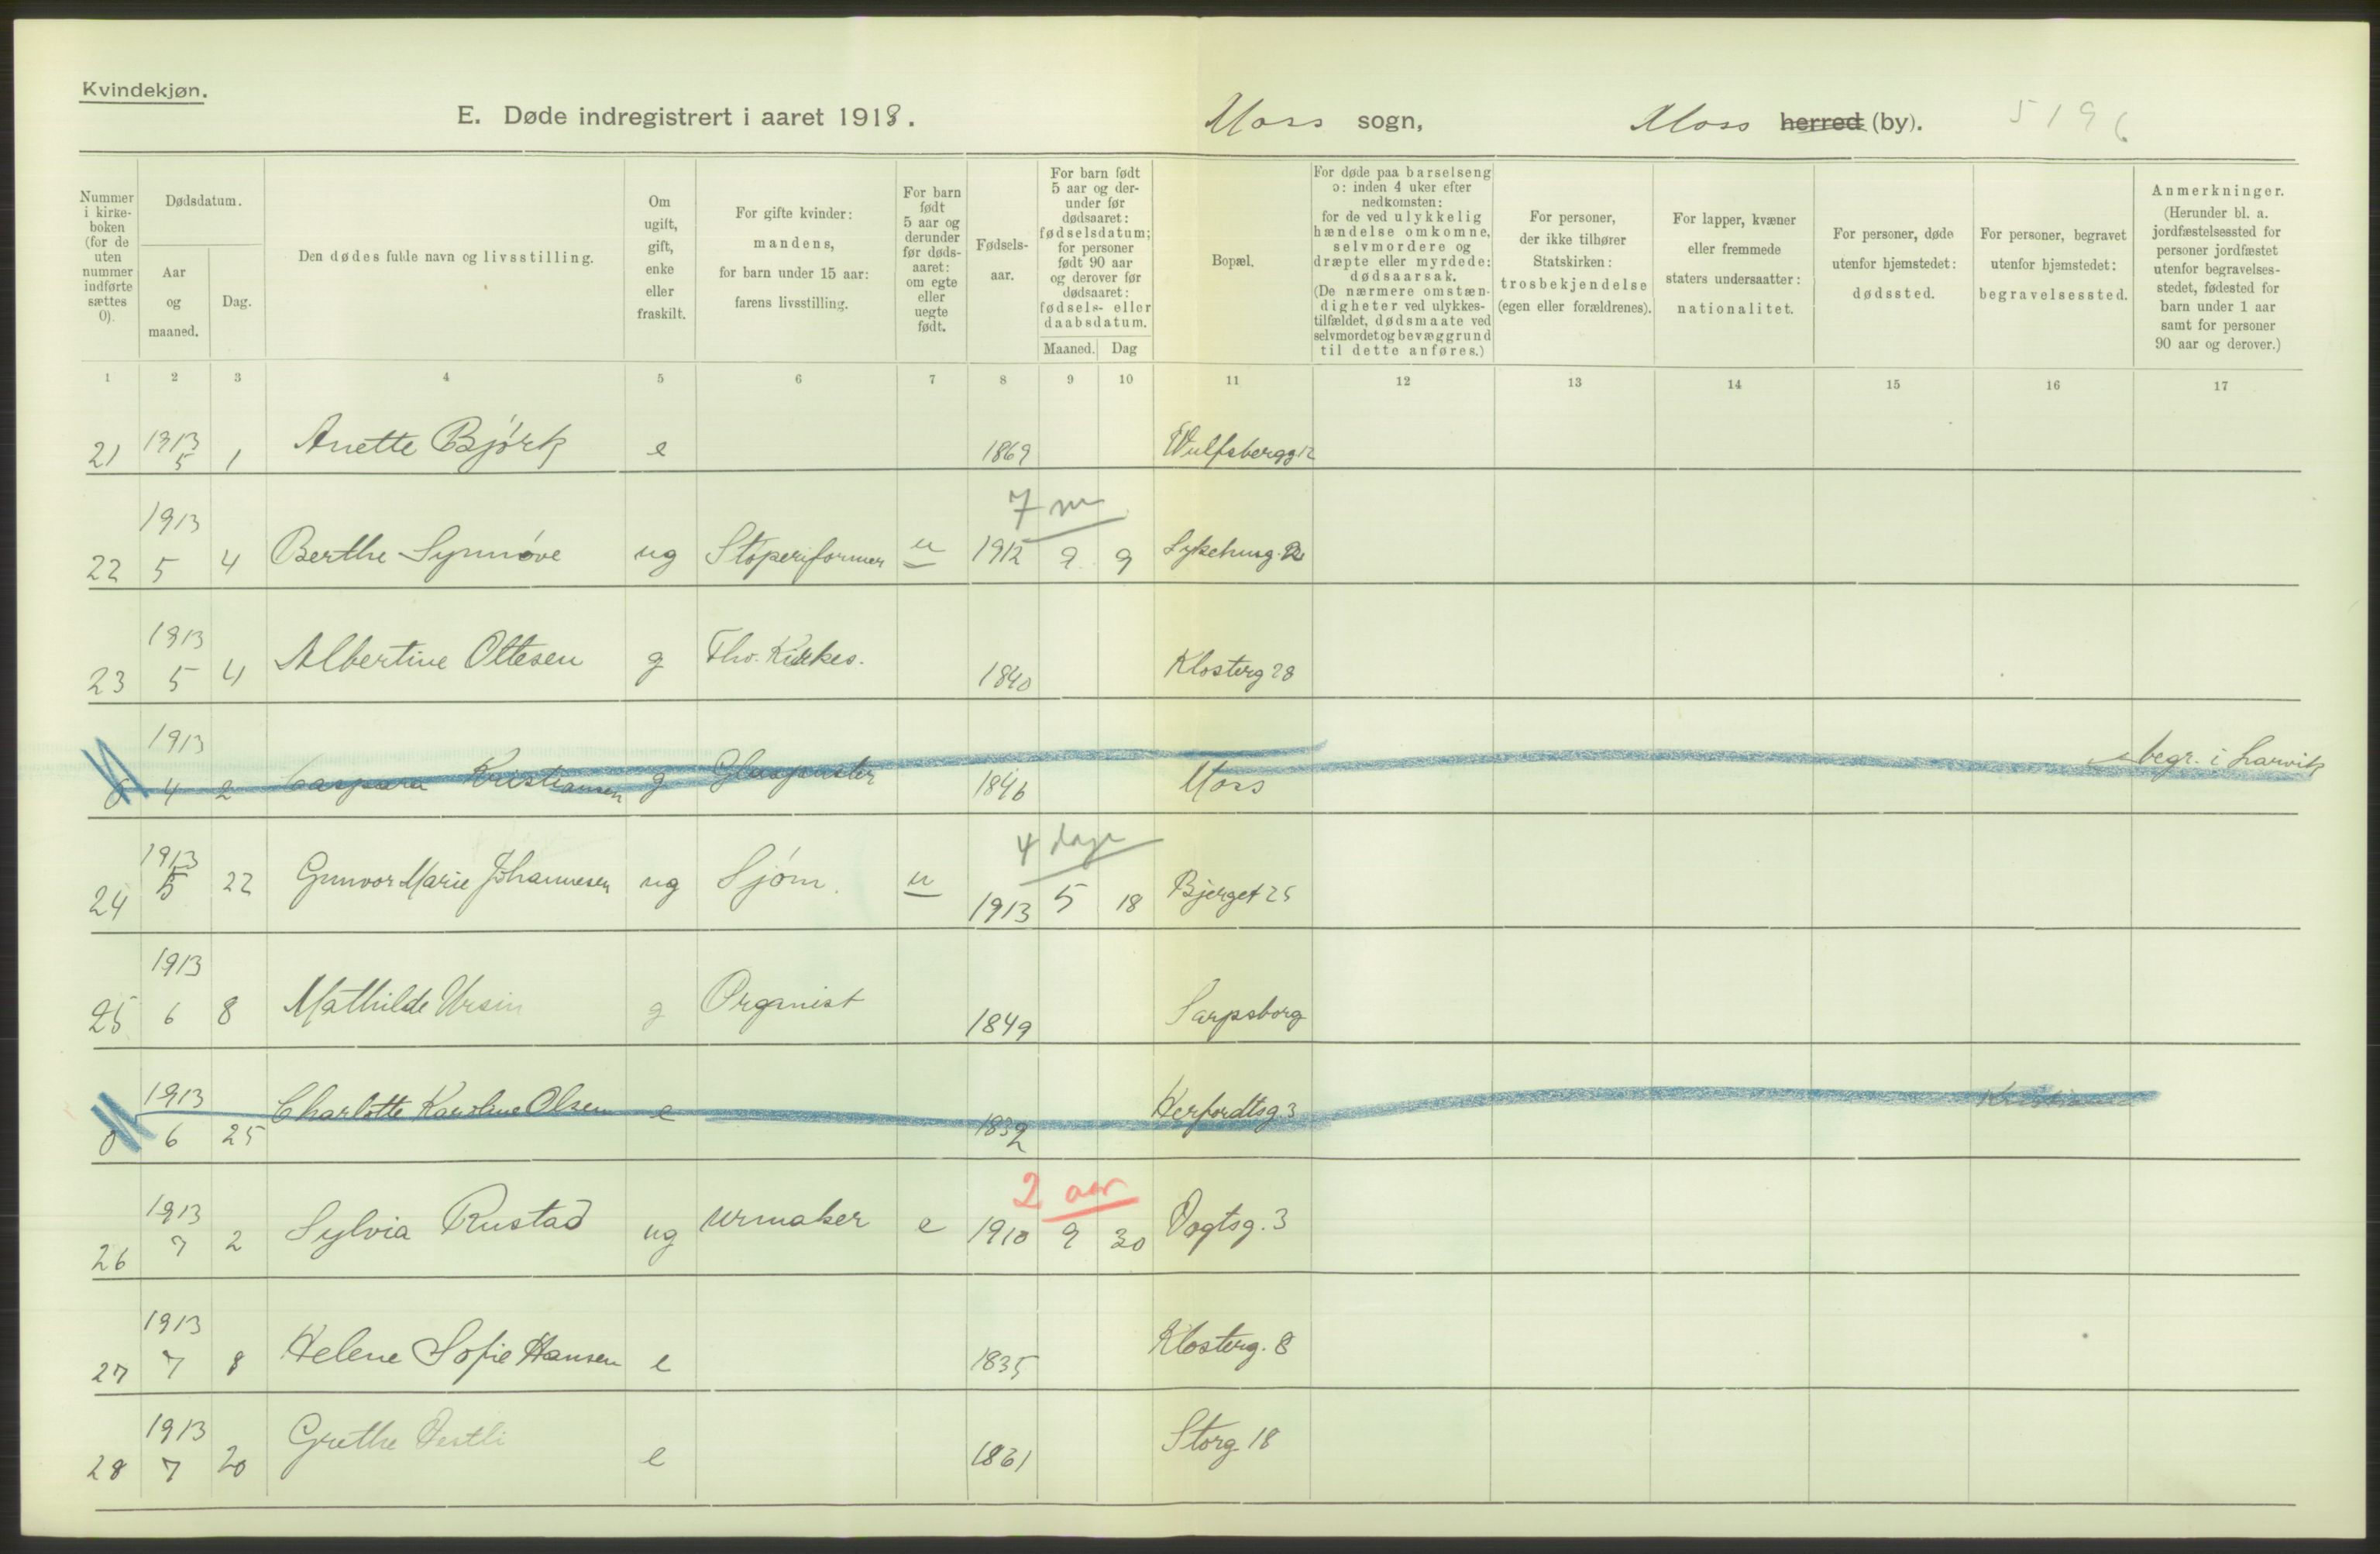 Kvindekjøn.
E. Døde indregistrert i aaret 1913. Moss sogn, Moss herred (by). 5196
Nummer i kirke-boken (for de uten nummer indførte sættes 0).
Dødsdatum.
Aar og maaned.
Dag.
Den dødes fulde navn og livsstilling.
Om ugift, gift, enke eller fraskilt.
For gifte kvinder: mandens, for barn under 15 aar: farens livsstilling.
For barn født 5 aar og derunder før døds-aaret: om egte eller uegte født.
Fødsels-aar.
For barn født 5 aar og der-under før dødsaaret: fødselsdatum; for personer født 90 aar og derover før dødsaaret: fødsels- eller daabsdatum.
Maaned. Dag
Bopæl.
For døde paa barselseng ɔ: inden 4 uker efter nedkomsten: for de ved ulykkelig hændelse omkomne, selvmordere og dræpte eller myrdede: dødsaarsak. (De nærmere omstæn-digheter ved ulykkes-tilfældet, dødsmaate ved selvmordet og bevæggrund til dette anføres.)
For personer, der ikke tilhører Statskirken: trosbekjendelse (egen eller forældrenes).
For lapper, kvæner eller fremmede staters undersaatter: nationalitet.
For personer, døde utenfor hjemstedet: dødssted.
For personer, begravet utenfor hjemstedet: begravelsessted.
Anmerkninger. (Herunder bl. a. jordfæstelsessted for personer jordfæstet utenfor begravelses-stedet, fødested for barn under 1 aar samt for personer 90 aar og derover.)
1 2 3 4 5 6 7 8 9 10 11 12 13 14 15 16 17
21 1913 5 1 Anette Bjørk e 1869 Wulfsbergg 12
7 m
22 1913 5 4 Berthe Synnøve ug Støperiformer u 1912 9 9 Sykehusg.
23 1913 5 4 Albertine Ottesen g Fhv. Kirkes. 1840 Klosterg 28
0 1913 4 2 Caspara Kristiansen g 1846 Moss begr. i Larvik
4 dage
24 1913 5 22 Gunvor Marie Johannesen ug Sjøm. u 1913 5 18 Bjerget 25
25 1913 6 8 Mathilde Ursin g Organist 1849 Sarpsborg
0 1913 6 25 Charlotte Karoline Olsen e 1832 Herfordtsg. 3 Kristiania
2 aar
26 1913 7 2 Sylvia Rustad ug urmaker e 1910 9 30 Vogtsg. 3
27 1913 7 8 Helene Sofie Hansen e 1835 Klosterg. 8
28 1913 7 20 Grethe Vestli e 1831 Storg 18